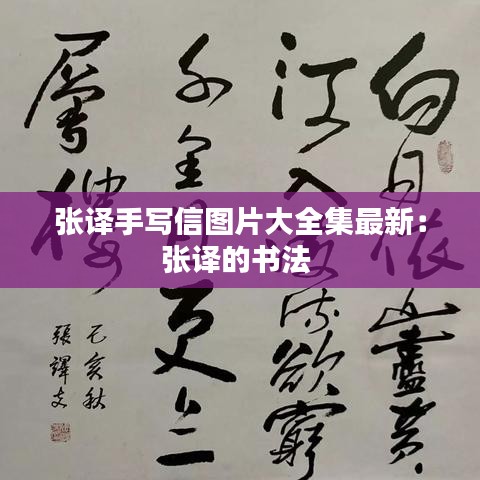 张译手写信图片大全集最新：
张译的书法
白日依山盡黄
河入海流欲窮
千里目更上一
層樓
己亥秋
張譯文